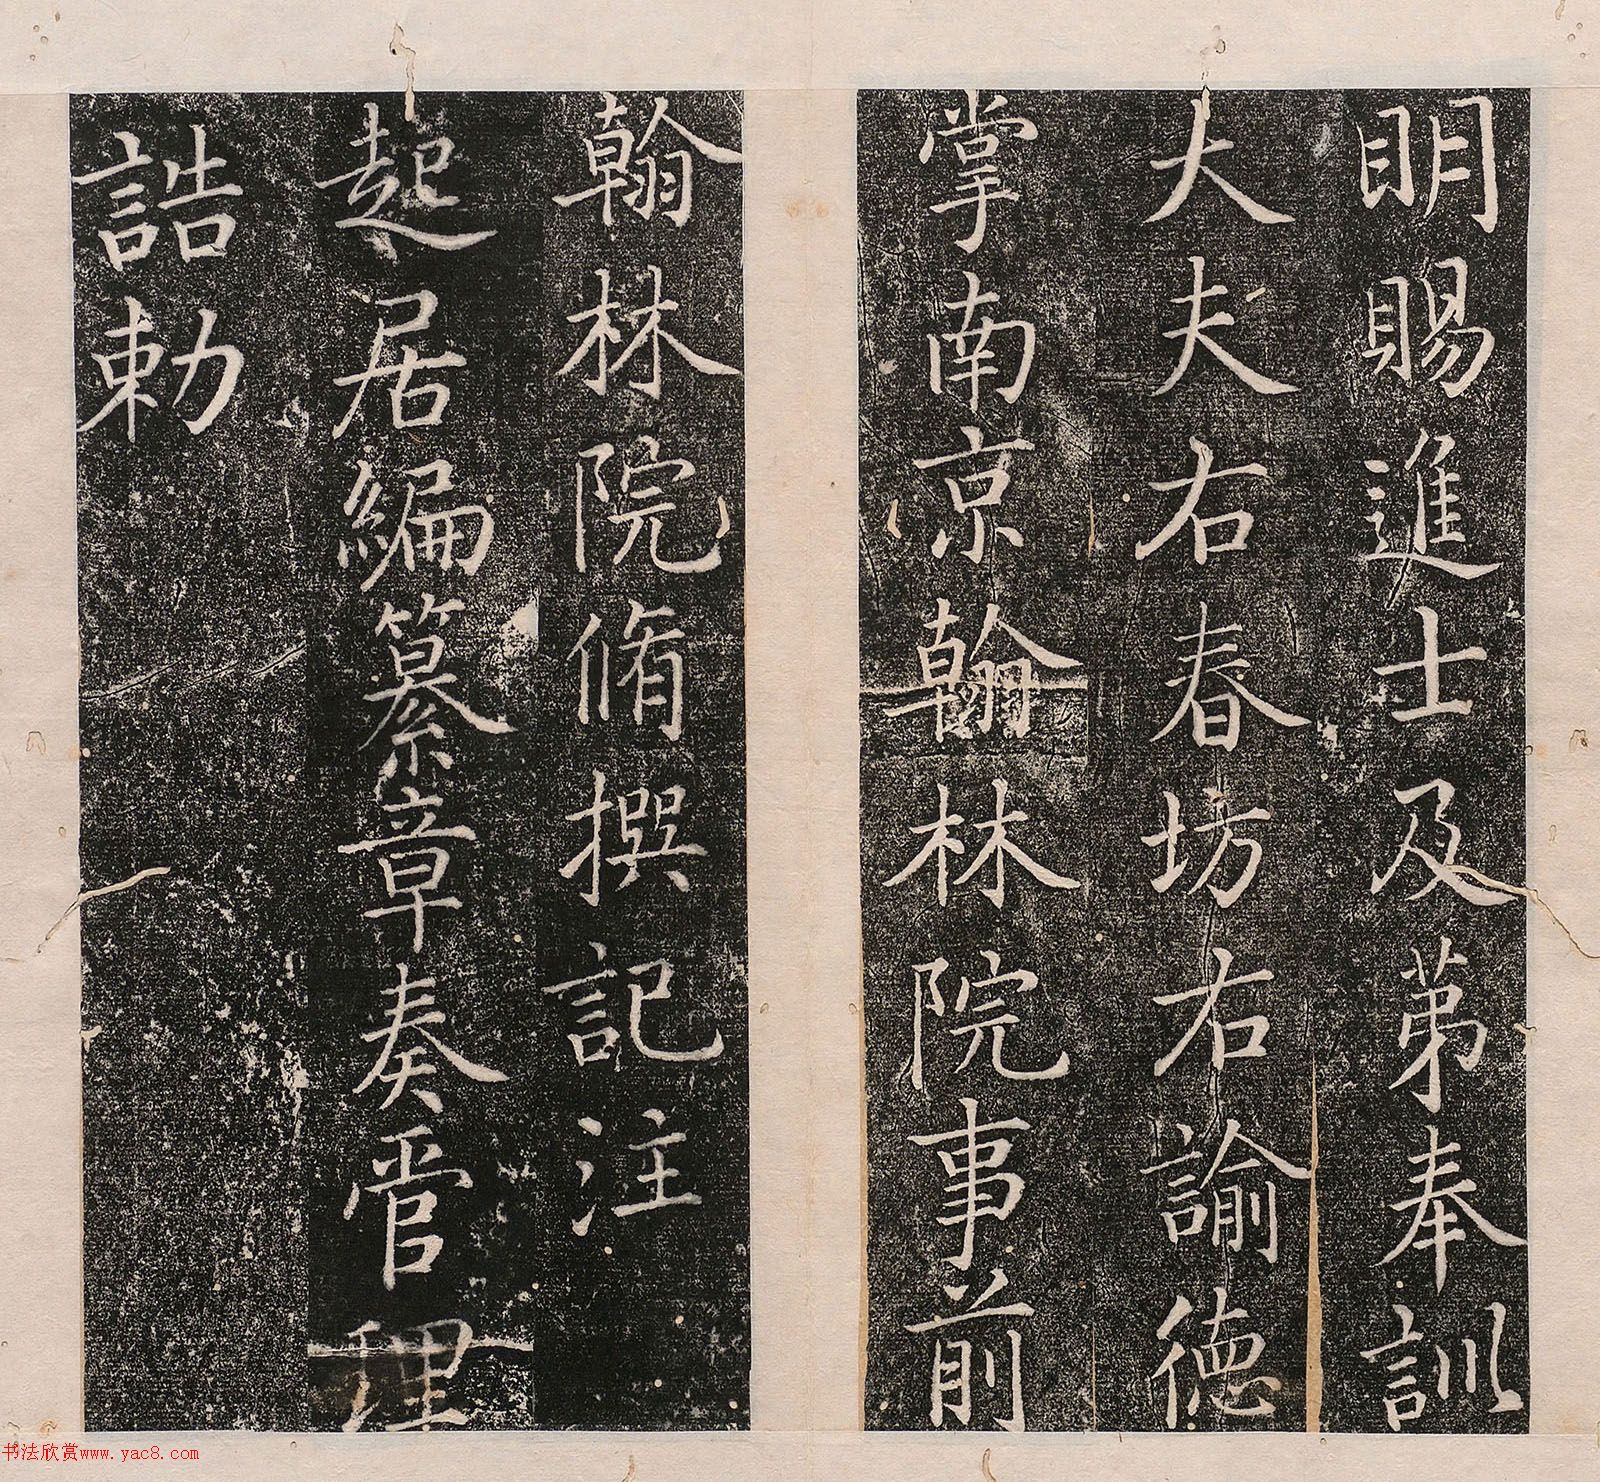 明賜進士及弟奉訓
大夫右春坊右諭德
掌南京翰林院事前
翰林院脩撰記注
起居編纂章奏管理
誥勅
书法欣赏www.yac8.com